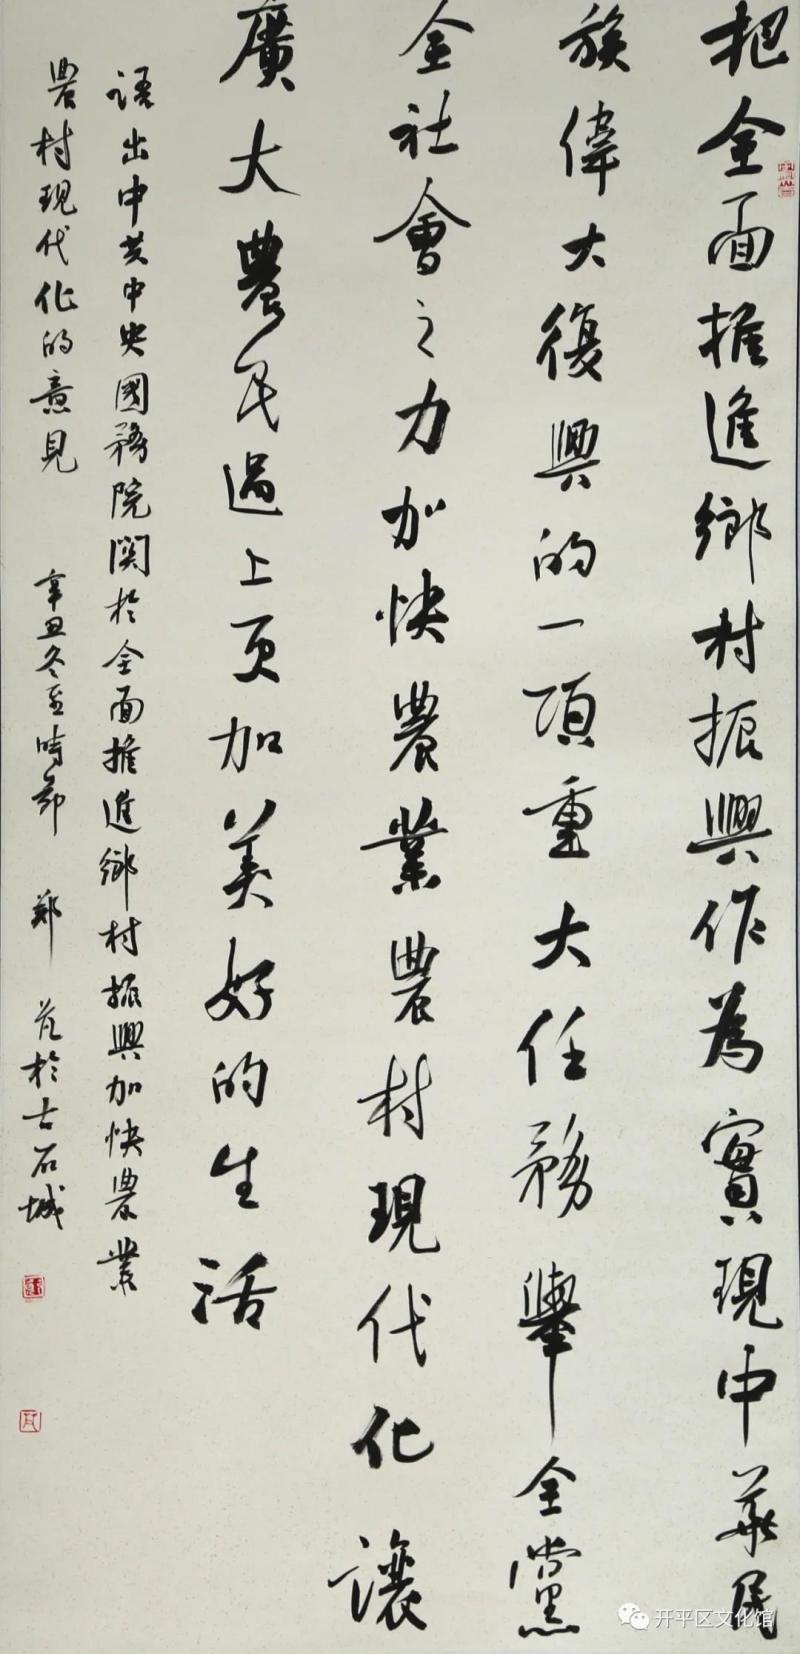 把全面推進鄉村振興作為實現中華民
族偉大復興的一項重大任務舉全黨
全社會之力加快農業農村現代化讓
廣大農民過上更加美好的生活
語出中共中央國務院関於全面推進鄉村振興加快農業
農村現代化的意見
辛丑冬至時節 鄭 芃於古石城
开平区文化馆